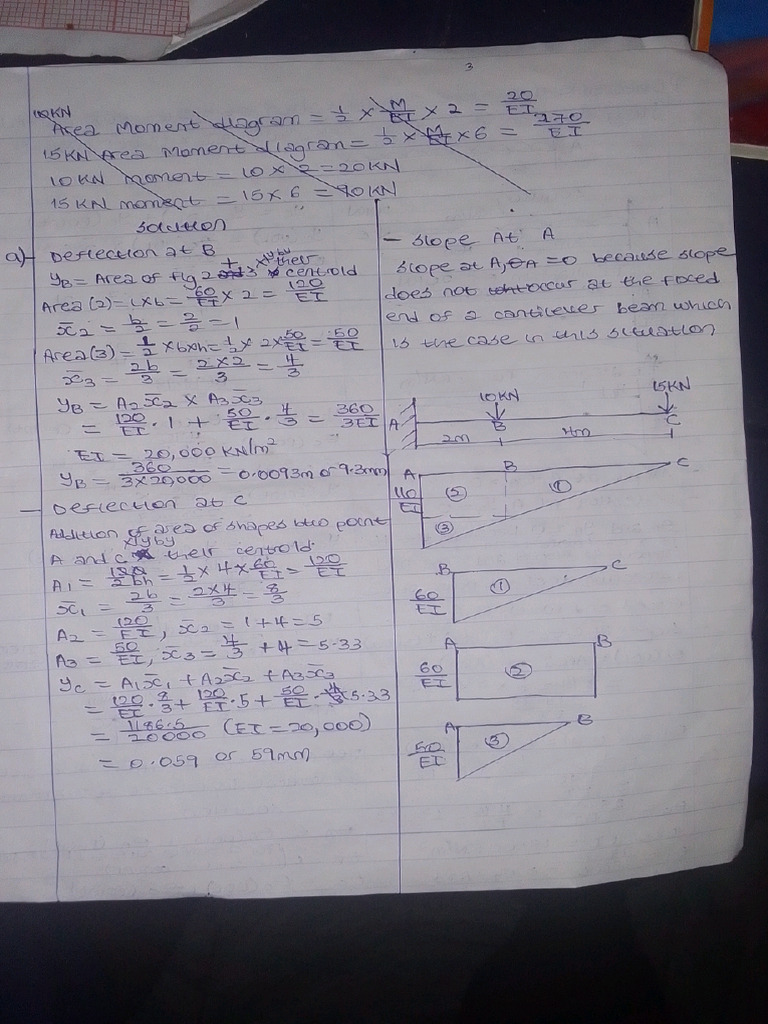 3
10KN
Area Moment diagram = 1/2 × M/EI × 2 = 20/EI
15KN Area Moment diagram = 1/2 × M/EI × 6 = 270/EI
10KN moment = 10 × 2 = 20KN
15KN moment = 15 × 6 = 90KN
solution
a) - Deflection at B
YB = Area of fig 2 + 3 xly by their centroid
Area (2) = L×b = 60/EI × 2 = 120/EI
x̄2 = b/2 = 2/2 = 1
Area (3) = 1/2 × b×h = 1/2 × 2 × 50/EI = 50/EI
x̄3 = 2b/3 = 2×2/3 = 4/3
YB = A2x̄2 × A3x̄3
= 120/EI · 1 + 50/EI · 4/3 = 360/3EI
EI = 20,000 KN/m²
YB = 360/3×20,000 = 0.0093m or 9.3mm
- Deflection at C
Addition of area of shapes btw point
A and C xly by their centroid.
A1 = 1/2 bh = 1/2 × 4 × 60/EI = 120/EI
x̄1 = 2b/3 = 2×4/3 = 8/3
A2 = 120/EI, x̄2 = 1+4 = 5
A3 = 50/EI, x̄3 = 4/3 + 4 = 5.33
YC = A1x̄1 + A2x̄2 + A3x̄3
= 120/EI · 8/3 + 120/EI · 5 + 50/EI · 5.33
= 1186.5/20000 (EI = 20,000)
= 0.059 or 59mm
- Slope At A
Slope at A, θA = 0 because slope
does not occur at the fixed
end of a cantilever beam which
is the case in this situation
10KN 15KN
A B C
2m 4m
A B C
110/EI ② ①
③
B C
60/EI ①
A B
60/EI ②
A B
50/EI ③